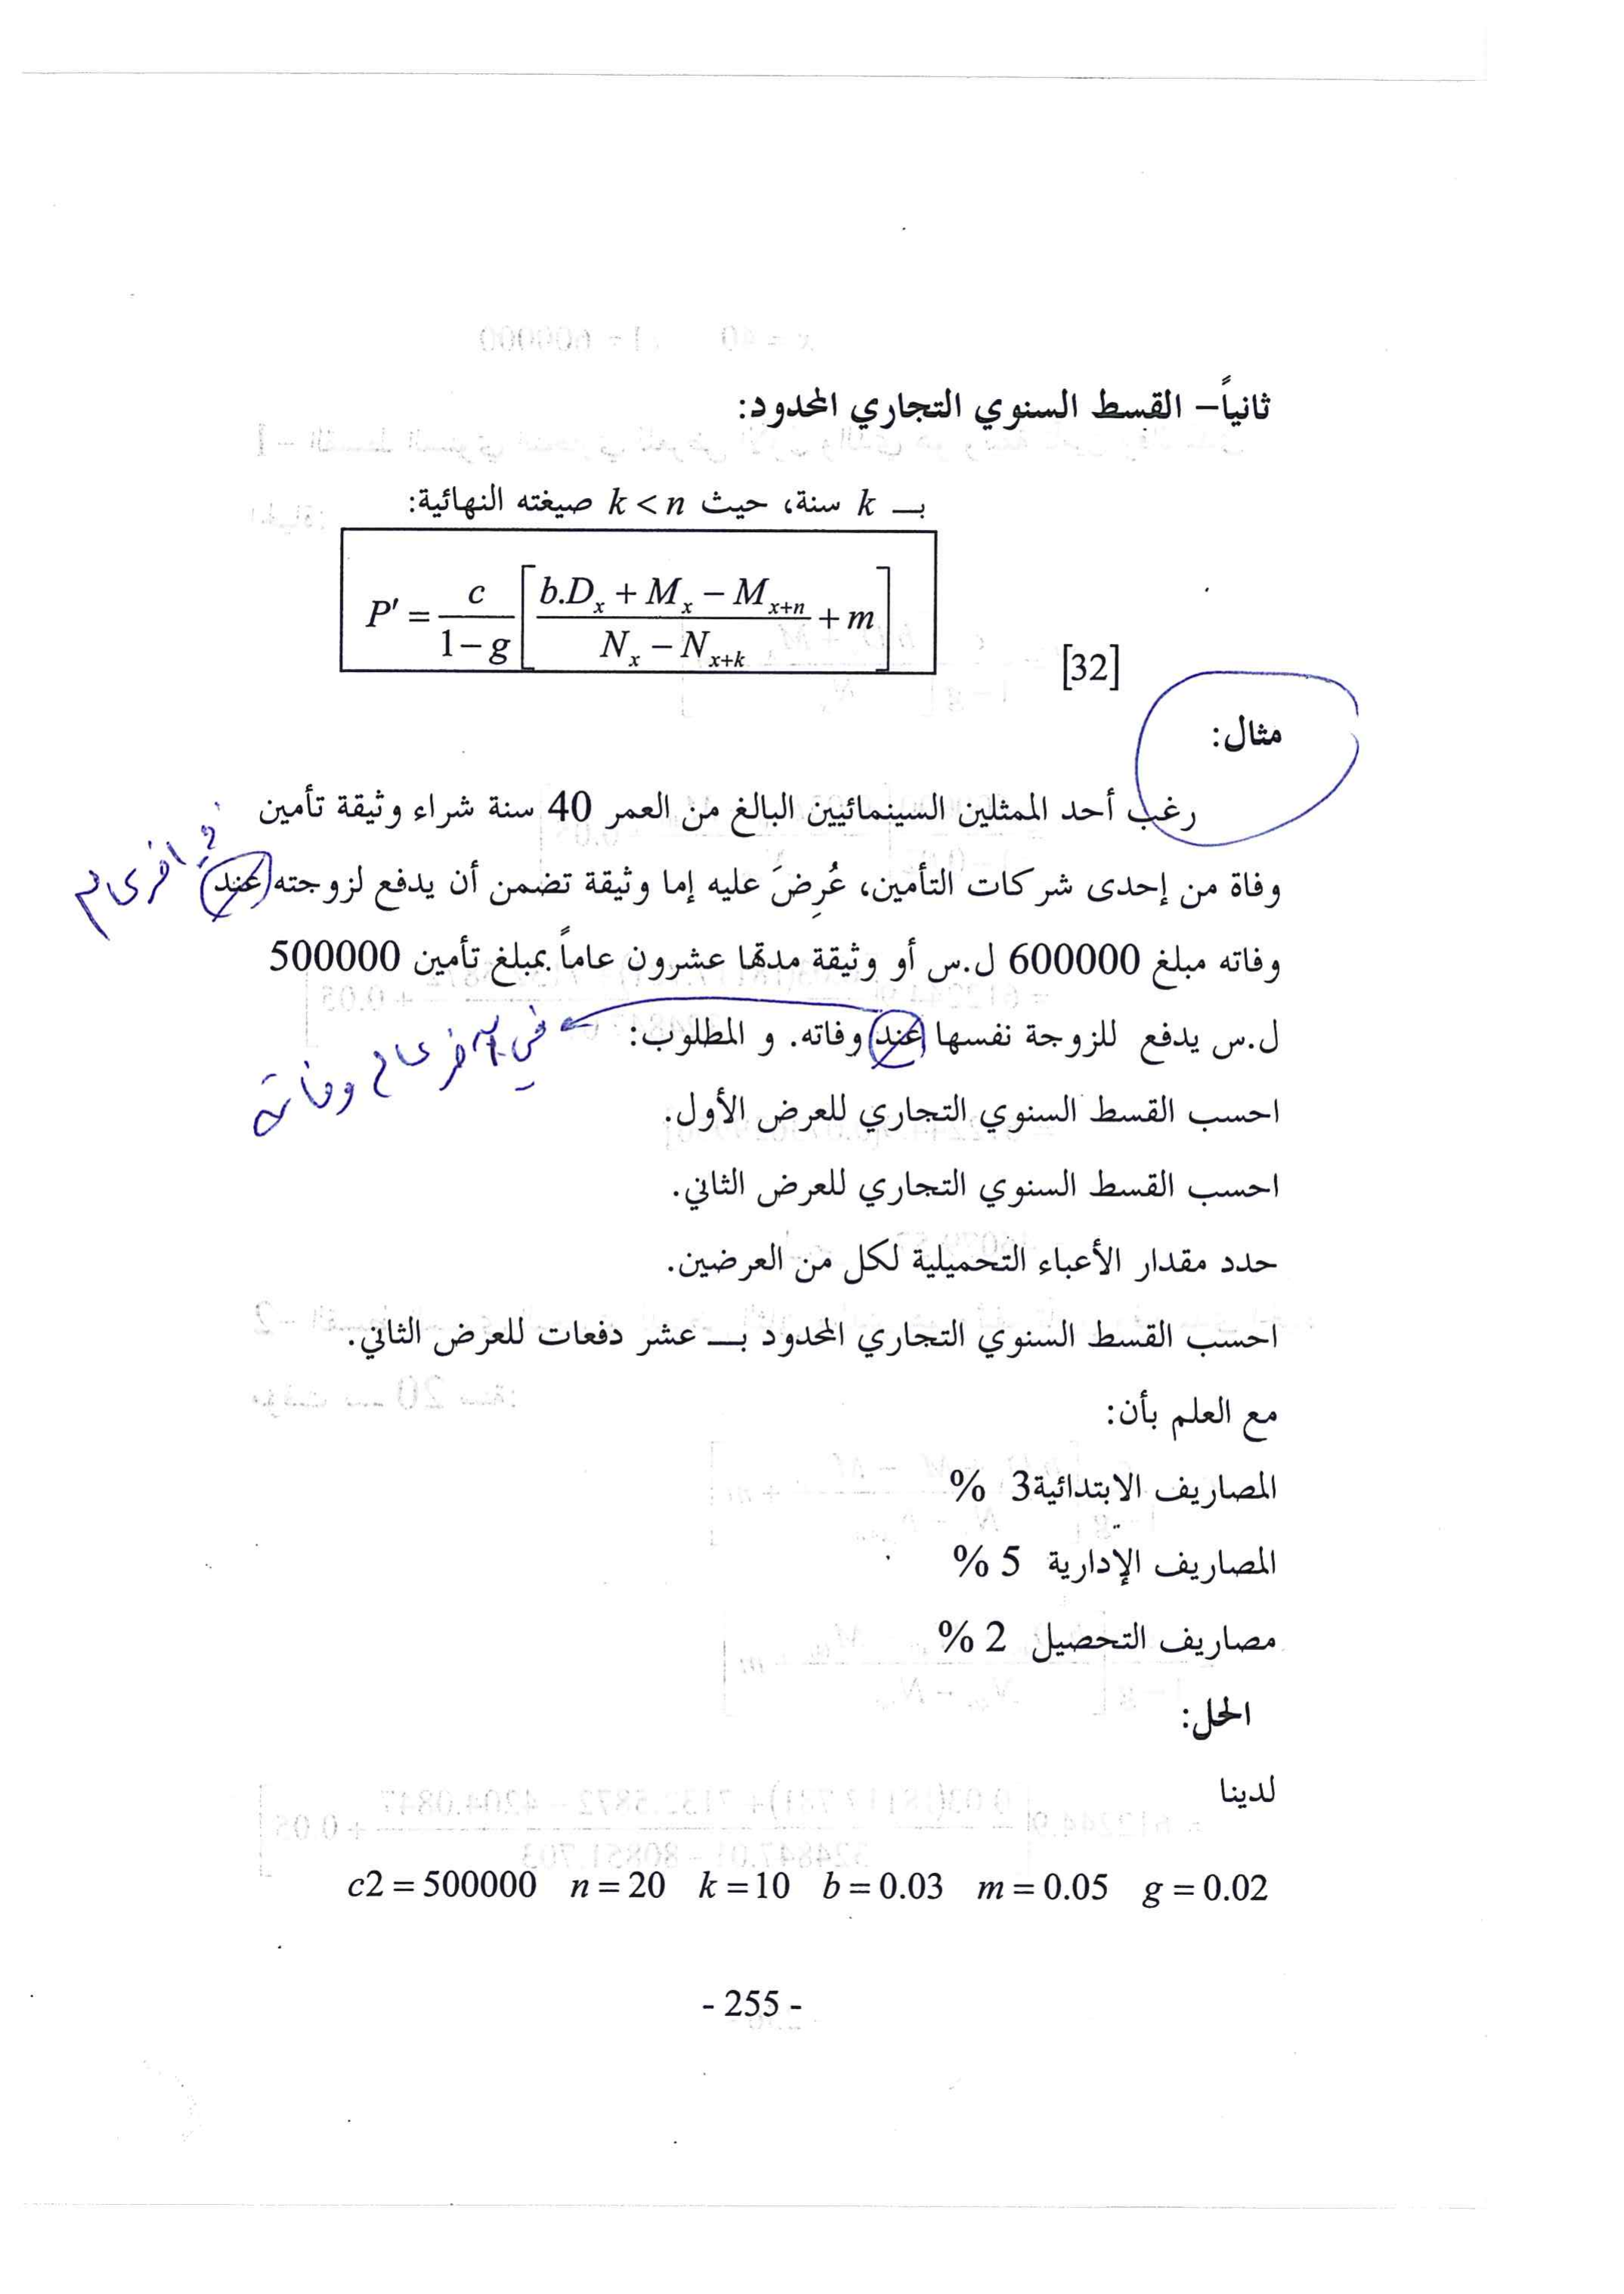 ثانياً– القسط السنوي التجاري المحدود:
بـ k سنة، حيث k < n صيغته النهائية:
P' = c / (1 − g) [ (b.Dx + Mx − Mx+n) / (Nx − Nx+k) + m ]
[32]
مثال:
رغب أحد الممثلين السينمائيين البالغ من العمر 40 سنة شراء وثيقة تأمين
وفاة من إحدى شركات التأمين، عُرِضَ عليه إما وثيقة تضمن أن يدفع لزوجته عند
وفاته مبلغ 600000 ل.س أو وثيقة مدتها عشرون عاماً بمبلغ تأمين 500000
ل.س يدفع للزوجة نفسها عند وفاته. و المطلوب:
في آخر عام وفاته
احسب القسط السنوي التجاري للعرض الأول.
احسب القسط السنوي التجاري للعرض الثاني.
حدد مقدار الأعباء التحميلية لكل من العرضين.
احسب القسط السنوي التجاري المحدود بـ عشر دفعات للعرض الثاني.
مع العلم بأن:
المصاريف الابتدائية3 %
المصاريف الإدارية 5 %
مصاريف التحصيل 2 %
الحل:
لدينا
c2 = 500000 n = 20 k = 10 b = 0.03 m = 0.05 g = 0.02
- 255 -